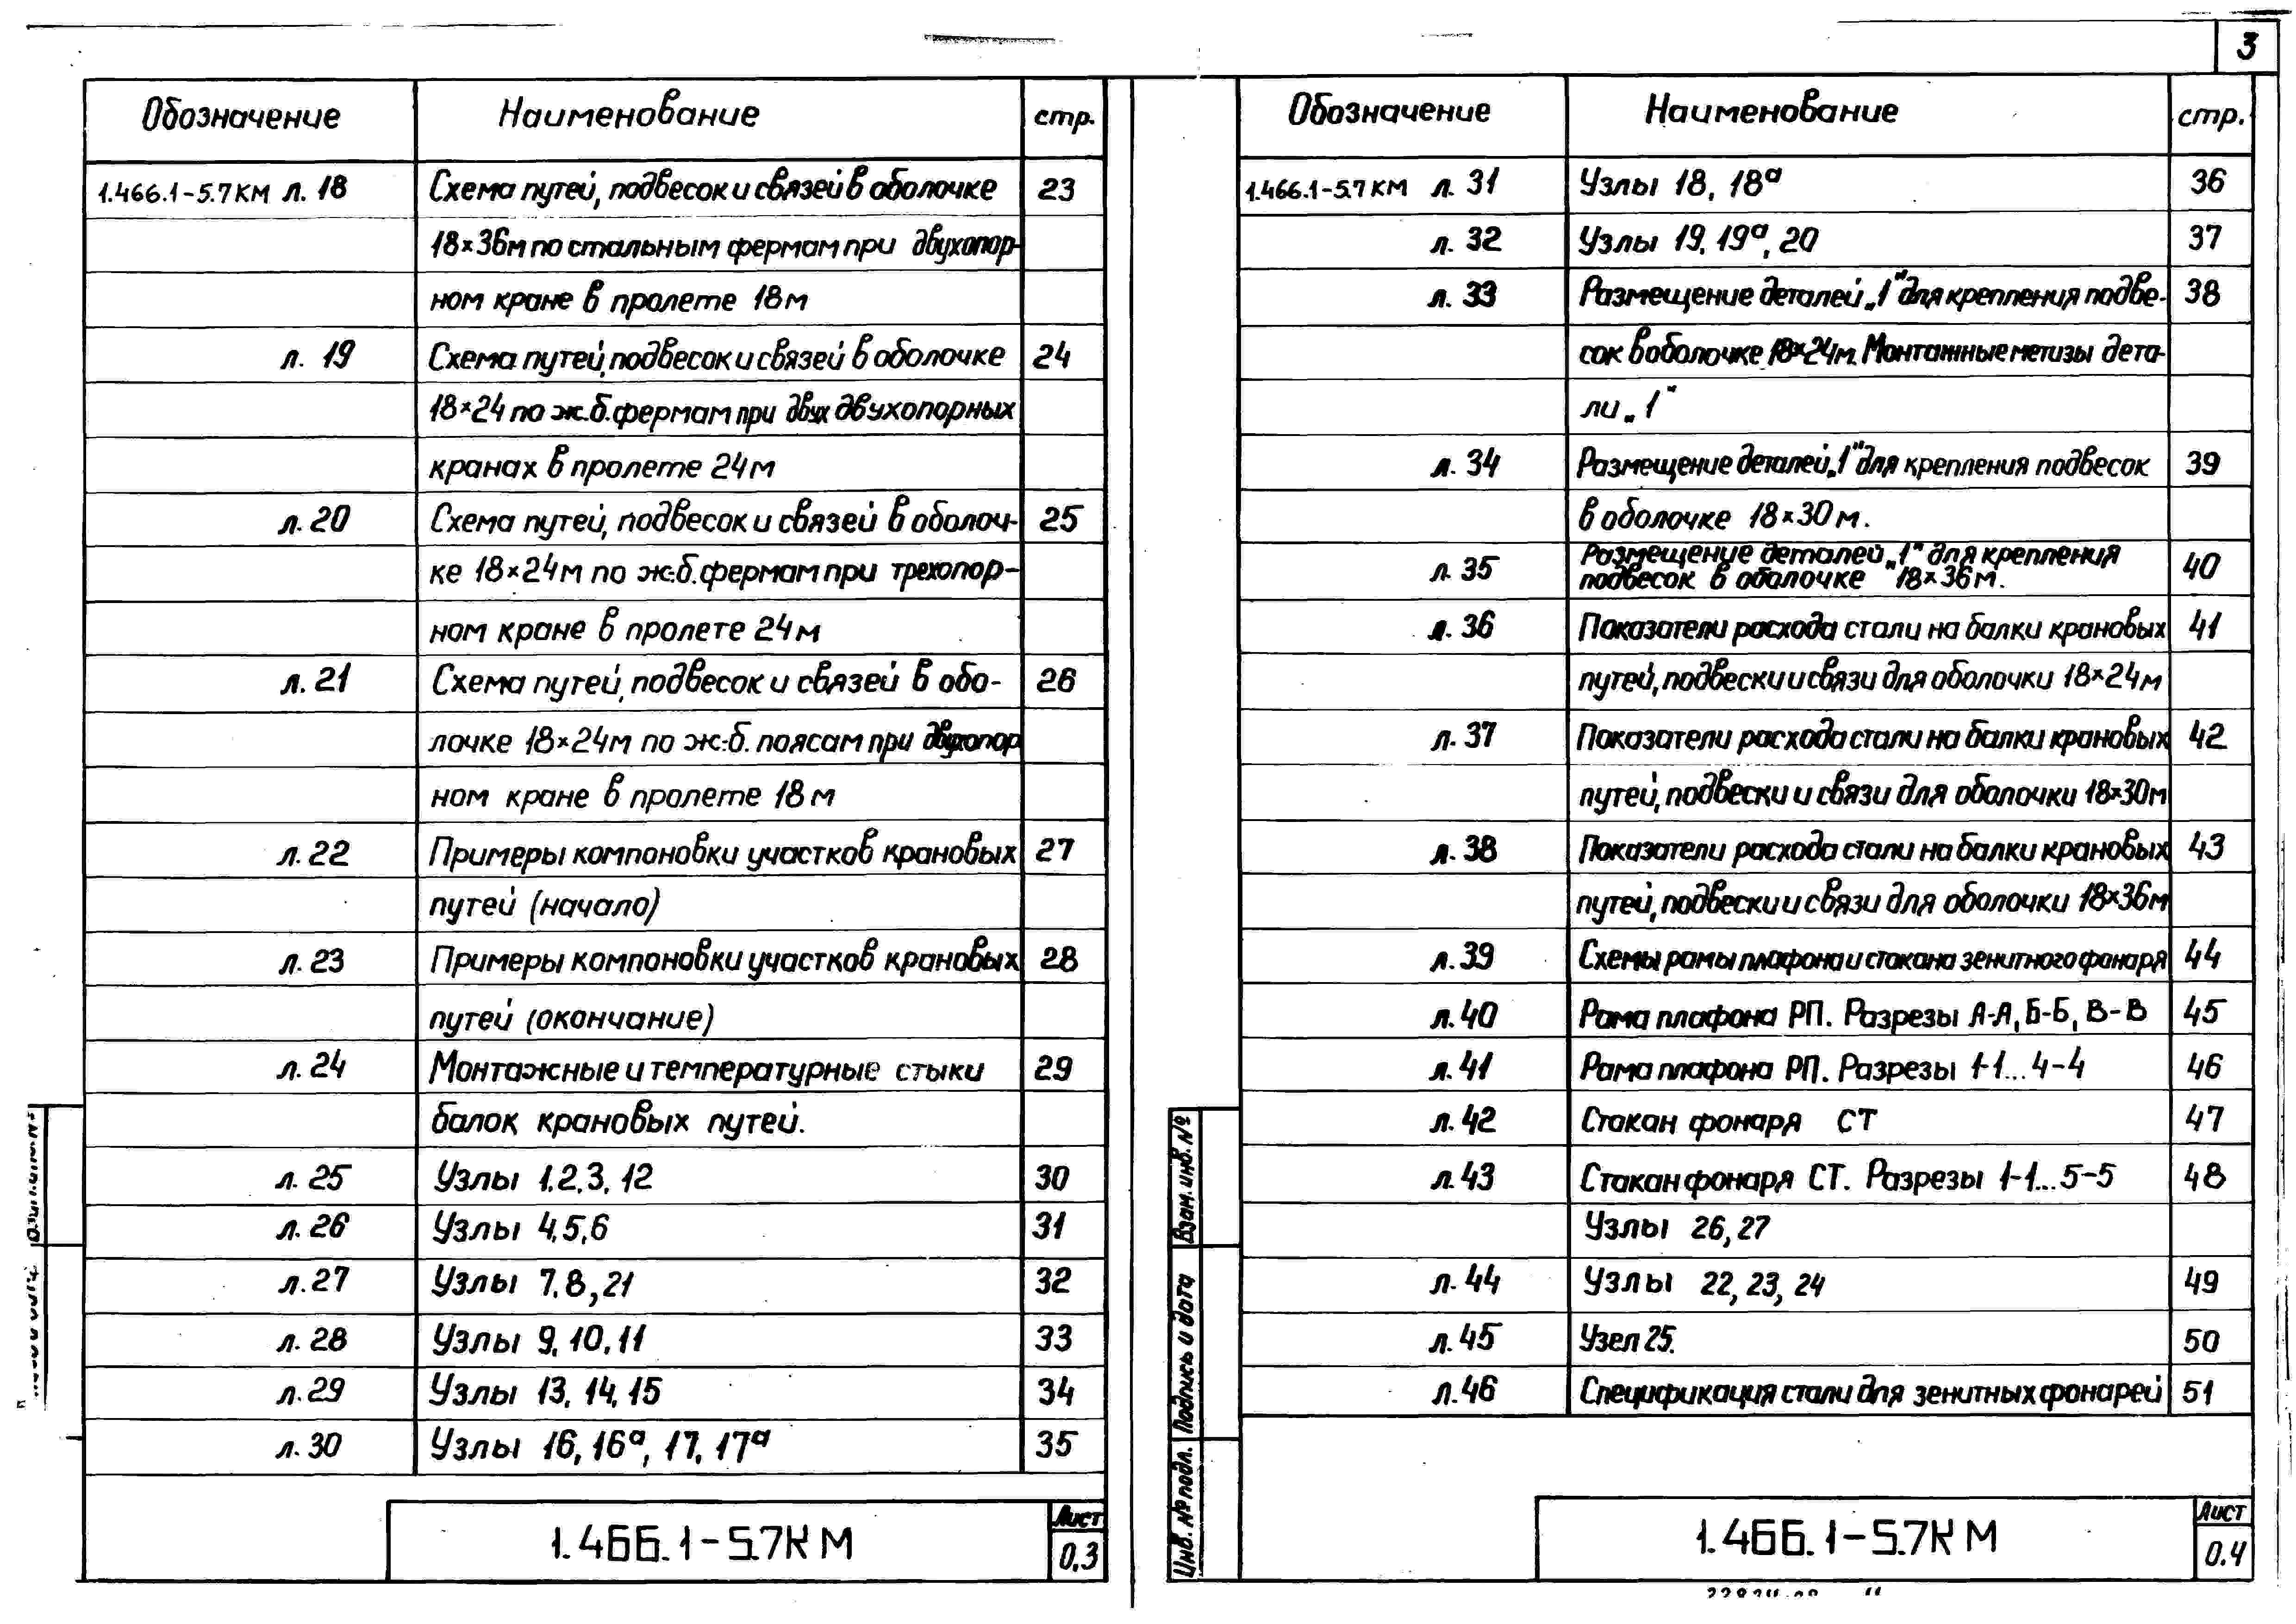 3
Обозначение Наименование стр.
1.466.1-5.7 КМ л. 18 Схема путей, подвесок и связей в оболочке 23
18×36м по стальным фермам при двухопор-
ном кране в пролете 18м
л. 19 Схема путей, подвесок и связей в оболочке 24
18×24 по ж.б. фермам при двух двухопорных
кранах в пролете 24м
л. 20 Схема путей, подвесок и связей в оболоч- 25
ке 18×24м по ж.-б. фермам при трехопор-
ном кране в пролете 24м
л. 21 Схема путей, подвесок и связей в обо- 26
лочке 18×24м по ж.-б. поясам при двухопор
ном кране в пролете 18м
л. 22 Примеры компоновки участков крановых 27
путей (начало)
л. 23 Примеры компоновки участков крановых 28
путей (окончание)
л. 24 Монтажные и температурные стыки 29
балок крановых путей.
л. 25 Узлы 1,2,3,12 30
л. 26 Узлы 4,5,6 31
л. 27 Узлы 7,8,21 32
л. 28 Узлы 9,10,11 33
л. 29 Узлы 13,14,15 34
л. 30 Узлы 16,16ª,17,17ª 35
1.466.1-5.7КМ
Лист
0.3
Обозначение Наименование стр.
1.466.1-5.7 КМ л. 31 Узлы 18, 18ª 36
л. 32 Узлы 19, 19ª, 20 37
л. 33 Размещение деталей „1" для крепления подве- 38
сок в оболочке 18×24м. Монтажные метизы дета-
ли „1"
л. 34 Размещение деталей „1" для крепления подвесок 39
в оболочке 18×30м.
л. 35 Размещение деталей „1" для крепления 40
подвесок в оболочке 18×36м.
л. 36 Показатели расхода стали на балки крановых 41
путей, подвески и связи для оболочки 18×24м
л. 37 Показатели расхода стали на балки крановых 42
путей, подвески и связи для оболочки 18×30м
л. 38 Показатели расхода стали на балки крановых 43
путей, подвески и связи для оболочки 18×36м
л. 39 Схемы рамы плафона и стакана зенитного фонаря 44
л. 40 Рама плафона РП. Разрезы А-А, Б-Б, В-В 45
л. 41 Рама плафона РП. Разрезы 1-1...4-4 46
л. 42 Стакан фонаря СТ 47
л. 43 Стакан фонаря СТ. Разрезы 1-1...5-5 48
Узлы 26,27
л. 44 Узлы 22,23,24 49
л. 45 Узел 25. 50
л. 46 Спецификация стали для зенитных фонарей 51
Взам. инв. №
Подпись и дата
Инв. № подл.
1.466.1-5.7КМ
Лист
0.4